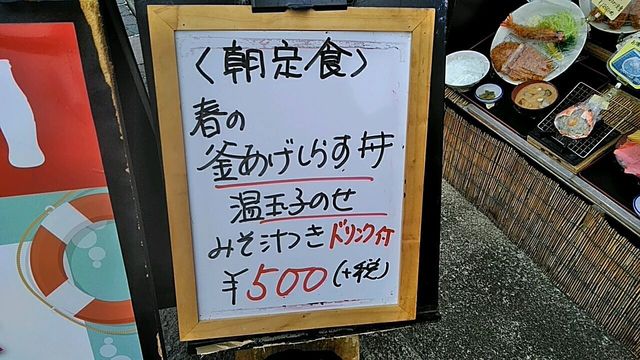 〈朝定食〉
春の
釜あげしらす丼
温玉子のせ
みそ汁つき ドリンク付
¥500(+税)